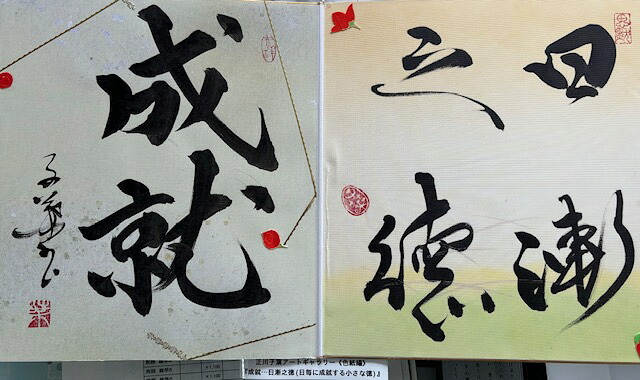 日漸
之徳
成就
子葉書
子葉アートギャラリー《色紙編》
『成就…日漸之徳(日毎に成就する小さな徳)』